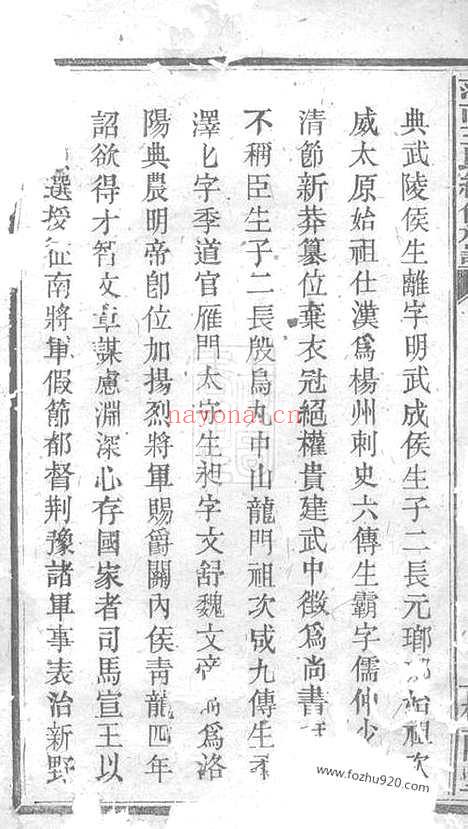 典武陵侯生離字明武成侯生子二長元瑯始祖次
威太原始祖仕漢爲楊州刺史六傳生霸字儒仲少
清節新莽簒位棄衣冠絕權貴建武中徵爲尚書
不稱臣生子二長殷烏丸中山龍門祖次咸九傳生
澤匕字季道官雁門太守生昶字文舒魏文帝爲洛
陽典農明帝卽位加揚烈將軍賜爵關內侯靑龍四年
詔欲得才智文章謀慮淵深心存國家者司馬宣王以
選授征南將軍假節都督荆豫諸軍事表治新野
hayona.com.cn
www.fozhu920.com